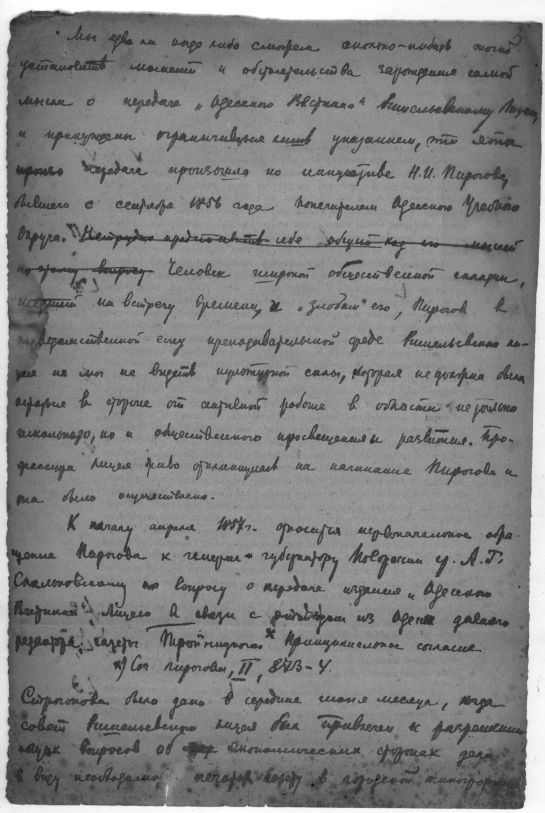 Мы едва ли когда либо сможем сколько-нибудь точно
установить момент и обстоятельства зарождения самой
мысли о передаче „Одесского Вестника“ Ришельевскому Лицею
и принуждены ограничиваться лишь указанием, что эта
передача произошла по инициативе Н.И. Пирогова,
бывшего с сентября 1856 года попечителем Одесского Учебного
Округа. Нетрудно представить себе общий ход его мыслей
по этому вопросу. Человек широкой общественной складки,
на встречу времени, и „злобам“ его, Пирогов в
подведомственной ему преподавательской среде Ришельевского ли-
цея не мог не видеть культурной силы, которая не должна была
в стороне от активной работы в области не только
школьного, но и общественного просвещения и развития. Про-
фессура лицея живо откликнулась на начинание Пирогова и
оно было осуществлено.
К началу апреля 1857 г. относится первоначальное обра-
щение Пирогова к генерал-губернатору Новороссии гр. А.Г.
по вопросу о передаче издания „Одесского
Вестника“ Лицею в связи с из Одессы давнего
редактора газеты Тройницкого x Принципиальное согласие
x) Соч. Пирогова, II, 873-4.
Строгонова было дано в середине июня месяца, когда
совет Ришельевского лицея был привлечен к разрешению
вопросов об экономических сторонах дела
в виду необходимо печатать газету в городской типографии